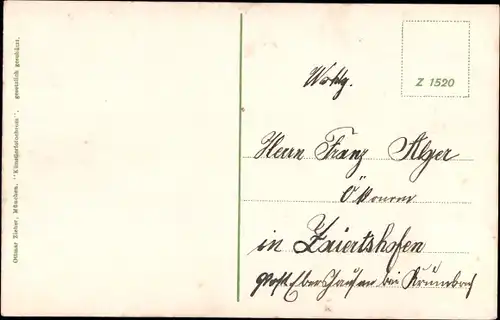 Ottmar Zieher, München. "Künstlerfotochrom". gesetzlich geschützt.
Z 1520
Wohlg.
Herrn Franz Alger
Ökonom
in Zaiertshofen
Post Ebershausen bei Krumbach